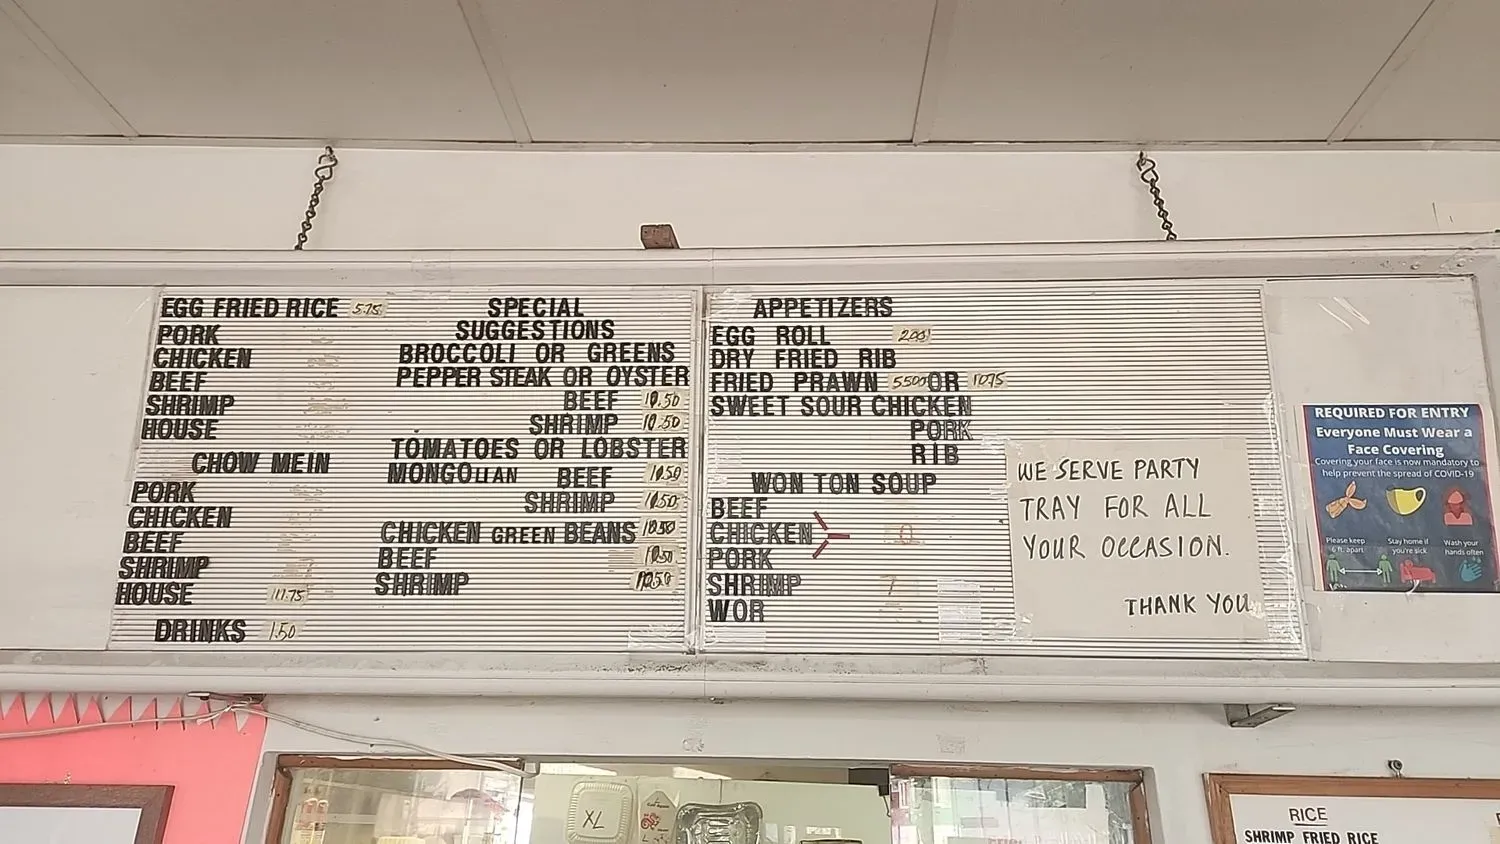 EGG FRIED RICE 5.75
PORK
CHICKEN
BEEF
SHRIMP
HOUSE
CHOW MEIN
PORK
CHICKEN
BEEF
SHRIMP
HOUSE 11.75
DRINKS 1.50
SPECIAL
SUGGESTIONS
BROCCOLI OR GREENS
PEPPER STEAK OR OYSTER
BEEF 10.50
SHRIMP 10.50
TOMATOES OR LOBSTER
MONGOLIAN BEEF 10.50
SHRIMP 10.50
CHICKEN GREEN BEANS 10.50
BEEF 10.50
SHRIMP 10.50
APPETIZERS
EGG ROLL 2.00
DRY FRIED RIB
FRIED PRAWN OR 10.75
SWEET SOUR CHICKEN
PORK
RIB
WON TON SOUP
BEEF
CHICKEN
PORK
SHRIMP
WOR
WE SERVE PARTY
TRAY FOR ALL
YOUR OCCASION.
THANK YOU
REQUIRED FOR ENTRY
Everyone Must Wear a
Face Covering
Covering your face is now mandatory to
help prevent the spread of COVID-19
Please keep
6 ft. apart
Stay home if
you're sick
Wash your
hands often
XL
RICE
SHRIMP FRIED RICE